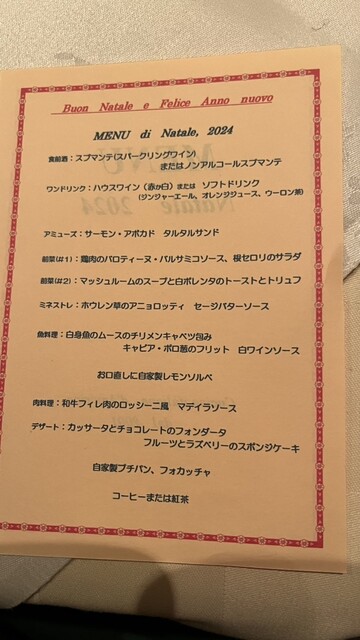 Buon Natale e Felice Anno nuovo
MENU di Natale, 2024
食前酒：スプマンテ(スパークリングワイン)
またはノンアルコールスプマンテ
ワンドリンク：ハウスワイン（赤か白）または ソフトドリンク
(ジンジャーエール、オレンジジュース、ウーロン茶)
アミューズ：サーモン・アボカド タルタルサンド
前菜(#1)：鶏肉のバロティーヌ・バルサミコソース、根セロリのサラダ
前菜(#2)：マッシュルームのスープと白ポレンタのトーストとトリュフ
ミネストレ：ホウレン草のアニョロッティ セージバターソース
魚料理：白身魚のムースのチリメンキャベツ包み
キャビア・ポロ葱のフリット 白ワインソース
お口直しに自家製レモンソルベ
肉料理：和牛フィレ肉のロッシーニ風 マデイラソース
デザート：カッサータとチョコレートのフォンダータ
フルーツとラズベリーのスポンジケーキ
自家製プチパン、フォカッチャ
コーヒーまたは紅茶